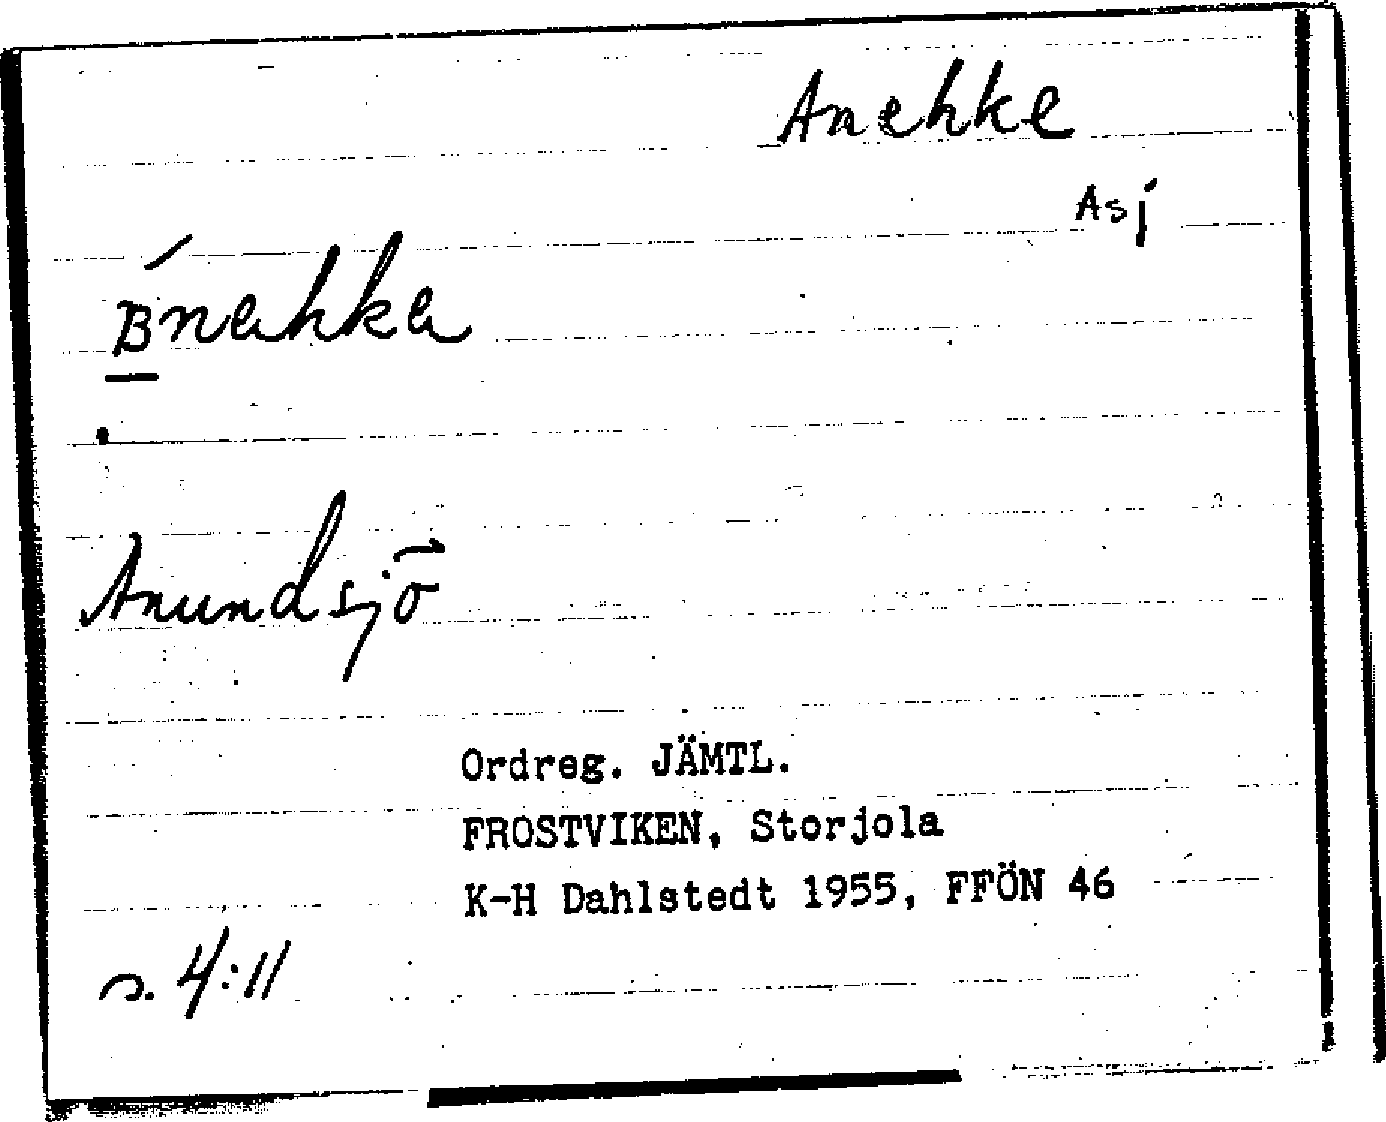 Anehke
Asj
Anundsjö
Ordreg. JÄMTL.
FROSTVIKEN, Storjola
K-H Dahlstedt 1955, FFÖN 46
s. 4:11